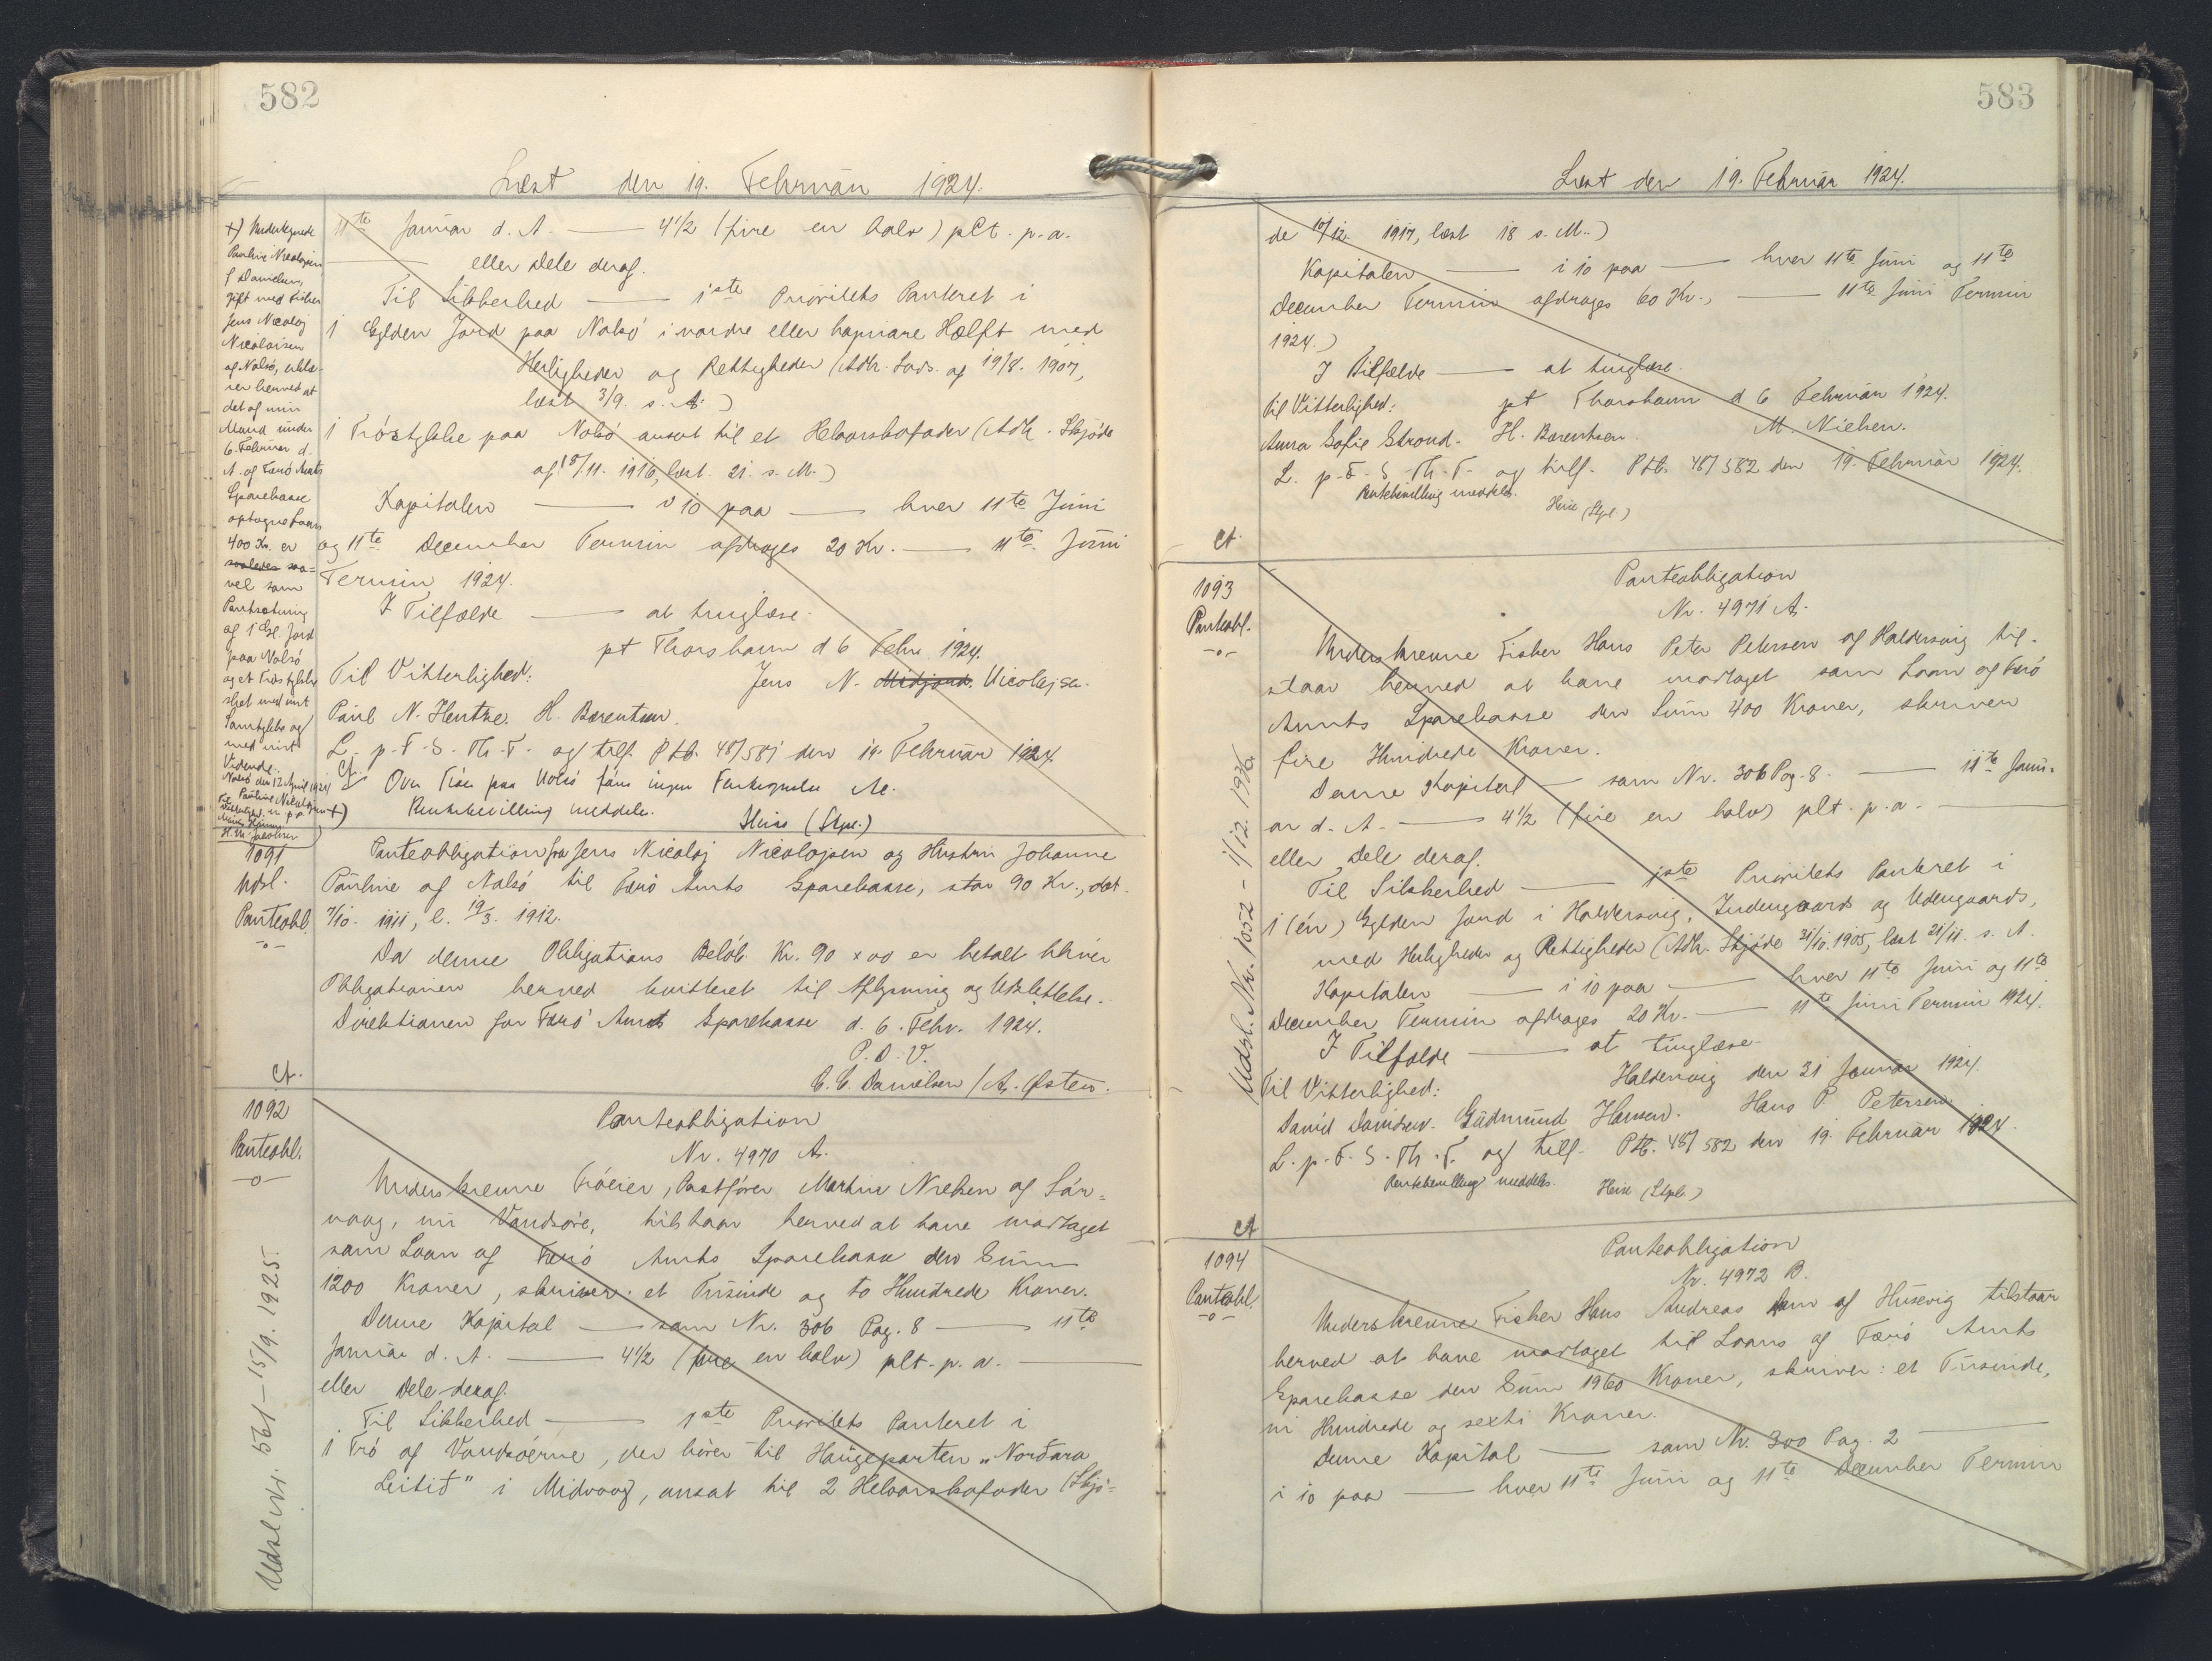 582
Læst den 19. Februar 1924.
+) Undertegnede
Pauline Nicolajsen
f. Danielsen,
gift med Fisker
Jens Nicolaj
Nicolaisen
af Nolsö, erklæ-
rer herved at
det af min
Mand under
6. Februar d.
A. af Færö Amts
Sparekasse
optagne Laan
400 Kr. er
saaledes saa=
vel som
Pantsætning
af 1 Gl. Jord
paa Nolsö
og et Tröstykke
sket med mit
Samtykke og
med mit
Vidende.
Nolsö den 12 April 1924
Pauline Nicolajsen
11te Januar d. A. — 4 1/2 (fire en halv) pCt. p. a.
— eller Dele deraf.
Til Sikkerhed — 1ste Prioritets Panteret i
1 Gylden Jord paa Nolsö i nordre eller hagnare Hælft med
Herligheder og Rettigheder (Adk. Lovs. af 19/8. 1907,
læst 3/9. s. A.)
1 Tröstykke paa Nolsö ansat til et Helaarskofoder (Adk. Skjöde
af 18/11. 1916, læst. 21. s. M.)
Kapitalen — i 10 paa — hver 11te Juni
og 11te December Termin afdrages 20 Kr. — 11te Juni
Termin 1924.
I Tilfælde — at tinglæse.
pt Thorshavn d 6 Febr. 1924.
Til Vitterlighed: Jens N. Midjord. Nicolajsen.
Paul N. Hentze. H. Barentsen.
L. p. F. S. Th. F. og tilf. Ptb. 48/581 den 19. Februar 1924.
Ct.
+) Rentebevilling meddeles. Heise (Stpl.)
1091
Udsl.
Panteobl.
-o-
Panteobligation fra Jens Nicolaj Nicolajsen og Hustru Johanne
Pauline af Nolsö til Færö Amts Sparekasse, stor 90 Kr., dat.
7/10. 1911, l. 19/3. 1912.
Da denne Obligations Belöb Kr. 90 x 00 er betalt bliver
Obligationen herved kvitteret til Aflysning og Udslettelse.
Direktionen for Færö Amts Sparekasse d. 6. Febr. 1924.
P. D. V.
C. C. Danielsen / A. Østerö.
Ct.
1092
Panteobl.
-o-
Udsl. Nr. 561 – 15/9. 1925.
Panteobligation
Nr. 4970 A.
Underskrevne Tróeier, Postförer Martin Nielsen af Sör=
vaag, nu Vandsöre, tilstaar herved at have modtaget
som Laan af Færö Amts Sparekasse den Sum
1200 Kroner, skriver et Tusinde og to Hundrede Kroner.
Denne Kapital — som Nr. 306 Pag. 8 — 11te
Januar d. A. — 4 1/2 (fire en halv) pCt. p. a. —
eller Dele deraf.
Til Sikkerhed — 1ste Prioritets Panteret i
1 Tró af Vandsöerne, der hörer til Haugeparten „Nordara
Leitid" i Midvaag, ansat til 2 Helaarskofoder (Skjö=
583
Læst den 19. Februar 1924.
de 10/12. 1917, læst 18 s. M.)
Kapitalen — i 10 paa — hver 11te Juni og 11te
December Termin afdrages 60 Kr., — 11te Juni Termin
1924.)
I Tilfælde — at tinglæse.
pt Thorshavn d 6 Februar 1924.
Til Vitterlighed: M. Nielsen.
Anna Sofie Strond. H. Barentsen.
L. p. F. S. Th. F. og tilf. Ptb. 48/582 den 19. Februar 1924.
Rentebevilling meddeles. Heise (Stpl.)
Ct.
1093
Panteobl.
-o-
Udsl. Nr. 1052 – 1/12. 1936.
Panteobligation
Nr. 4971 A.
Underskrevne Fisker Hans Peter Petersen af Haldersvig til-
staar herved at have modtaget som Laan af Færö
Amts Sparekasse den Sum 400 Kroner, skriver
fire Hundrede Kroner.
Denne Kapital — som Nr. 306 Pag. 8. — 11te Janu-
ar d. A. — 4 1/2 (fire en halv) pCt. p. a. —
eller Dele deraf.
Til Sikkerhed — 1ste Prioritets Panteret i
1 (én) Gylden Jord i Haldersvig, Indengaards og Udengaards,
med Herligheder og Rettigheder (Adk. Skjöde 31/10. 1905, læst 21/11. s. A.
Kapitalen — i 10 paa — hver 11te Juni og 11te
December Termin afdrages 20 Kr. — 11te Juni Termin 1924.
I Tilfælde — at tinglæse.
Haldersvig den 31 Januar 1924.
Til Vitterlighed: Hans P. Petersen.
David Davidsen. Gudmund Hansen.
L. p. F. S. Th. F. og tilf. Ptb. 48/582 den 19. Februar 1924.
Rentebevilling meddeles. Heise (Stpl.)
Ct
1094
Panteobl.
-o-
Panteobligation
Nr. 4972 B.
Underskrevne Fisker Hans Andreas af Husevig tilstaar
herved at have modtaget til Laans af Færö Amts
Sparekasse den Sum 1960 Kroner, skriver: et Tusinde,
ni Hundrede og sexti Kroner.
Denne Kapital — som Nr. 300 Pag. 2 —
i 10 paa — hver 11te Juni og 11te December Termin